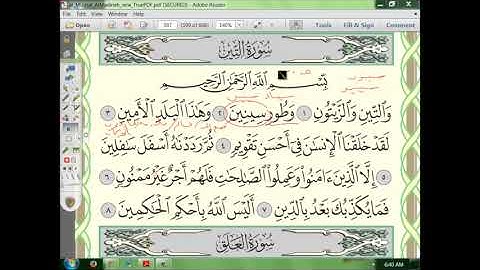 Mushaf_AlMadinah_new_TruePDF.pdf (SECURED) - Adobe Reader
Open
597
(599 of 606)
140%
Tools
Fill & Sign
Comment
سُورَةُ التِّينِ
بِسْمِ اللَّهِ الرَّحْمَٰنِ الرَّحِيمِ
وَالتِّينِ وَالزَّيْتُونِ ١ وَطُورِ سِينِينَ ٢ وَهَٰذَا الْبَلَدِ الْأَمِينِ ٣
لَقَدْ خَلَقْنَا الْإِنسَٰنَ فِي أَحْسَنِ تَقْوِيمٍ ٤ ثُمَّ رَدَدْنَٰهُ أَسْفَلَ سَٰفِلِينَ
٥ إِلَّا الَّذِينَ ءَامَنُوا وَعَمِلُوا الصَّٰلِحَٰتِ فَلَهُمْ أَجْرٌ غَيْرُ مَمْنُونٍ ٦
فَمَا يُكَذِّبُكَ بَعْدُ بِالدِّينِ ٧ أَلَيْسَ اللَّهُ بِأَحْكَمِ الْحَٰكِمِينَ ٨
سُورَةُ الْعَلَقِ
6:40 AM